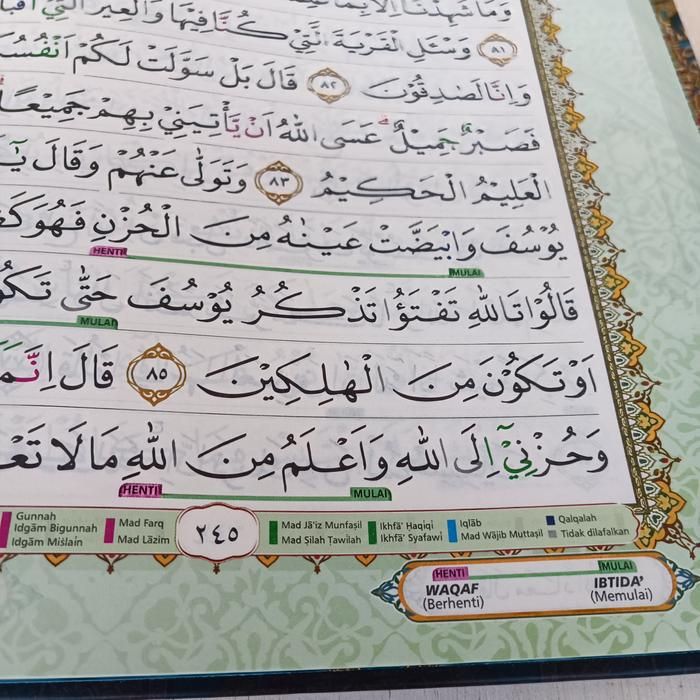 وَمَا شَهِدْنَآ اِلَّا بِمَا
وَسْـَٔلِ الْقَرْيَةَ الَّتِيْ كُنَّا فِيْهَا وَالْعِيْرَ الَّتِيْٓ ٨١
وَاِنَّا لَصٰدِقُوْنَ ٨٢ قَالَ بَلْ سَوَّلَتْ لَكُمْ اَنْفُسُ
فَصَبْرٌ جَمِيْلٌ ۗ عَسَى اللّٰهُ اَنْ يَّأْتِيَنِيْ بِهِمْ جَمِيْعًا
الْعَلِيْمُ الْحَكِيْمُ ٨٣ وَتَوَلّٰى عَنْهُمْ وَقَالَ يٰٓ
يُوْسُفَ وَابْيَضَّتْ عَيْنٰهُ مِنَ الْحُزْنِ فَهُوَ كَظ
HENTI MULAI
قَالُوْا تَاللّٰهِ تَفْتَؤُا تَذْكُرُ يُوْسُفَ حَتّٰى تَكُو
MULAI
اَوْ تَكُوْنَ مِنَ الْهٰلِكِيْنَ ٨٥ قَالَ اِنَّمَ
وَحُزْنِيْٓ اِلَى اللّٰهِ وَاَعْلَمُ مِنَ اللّٰهِ مَا لَا تَعْ
HENTI MULAI
Gunnah
Idgām Bigunnah
Idgām Miślain
Mad Farq
Mad Lāzim
٢٤٥
Mad Jā'iz Munfaṣil
Mad Ṣilah Ṭawīlah
Ikhfā' Ḥaqiqi
Ikhfā' Syafawi
Iqlāb
Mad Wājib Muttaṣil
Qalqalah
Tidak dilafalkan
HENTI MULAI
WAQAF IBTIDA'
(Berhenti) (Memulai)